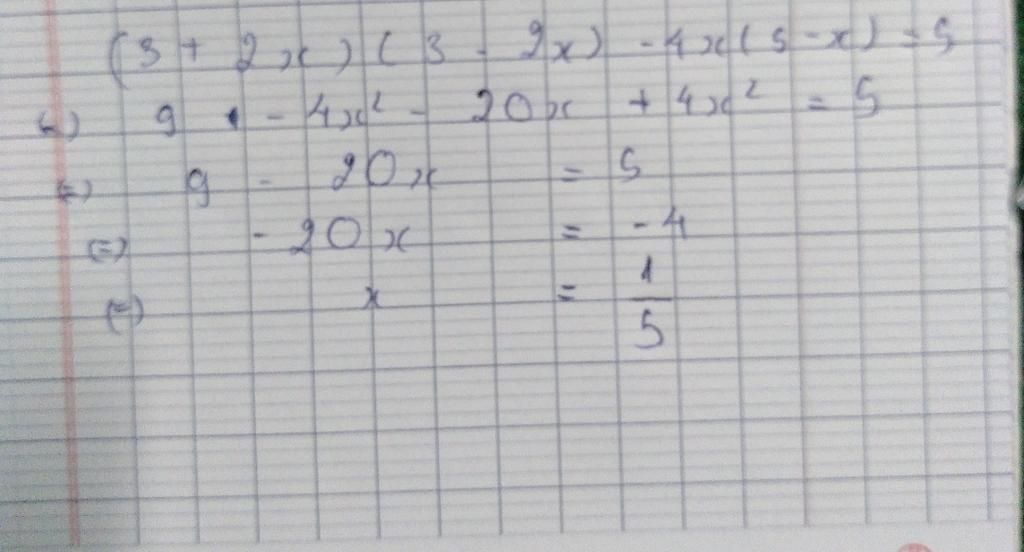 (3 + 2x)(3 - 2x) - 4x(5-x) = 5
(=) 9 - 4x² - 20x + 4x² = 5
(=) 9 - 20x = 5
(=) - 20x = -4
(=) x = 1/5